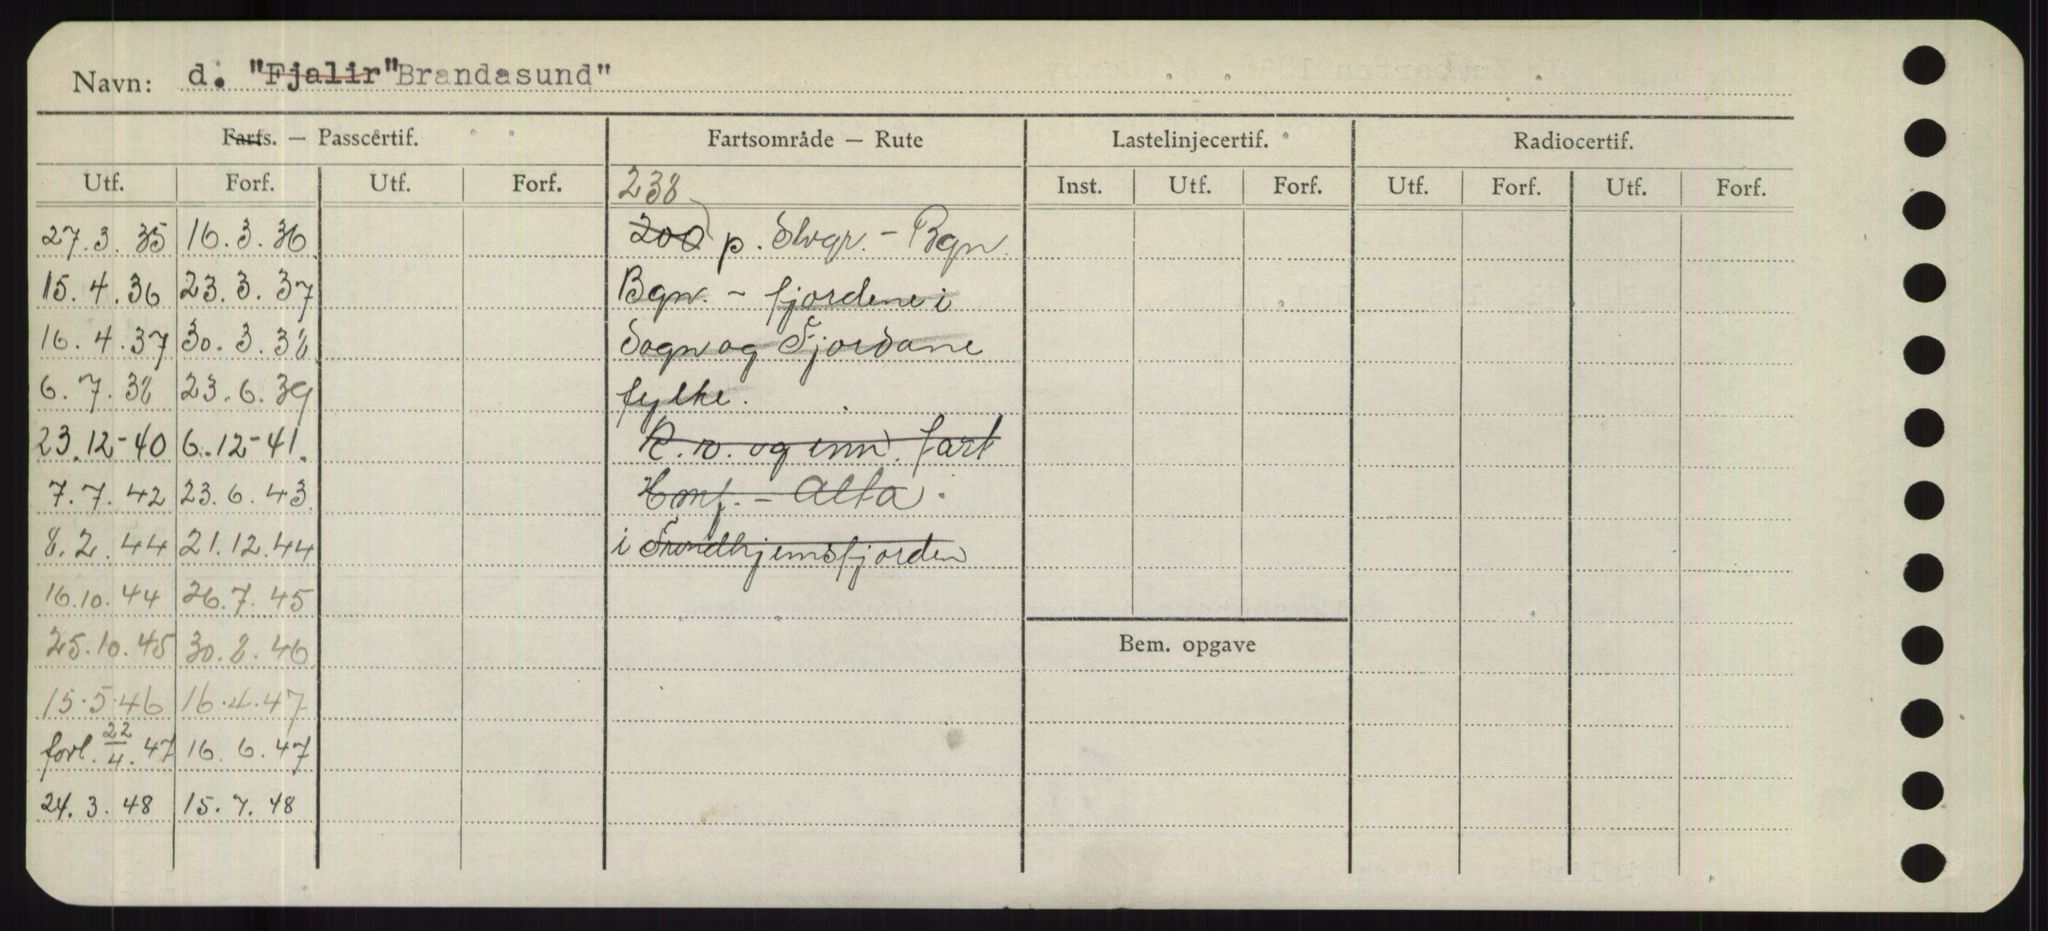 Navn: d. "Fjalir" Brandasund"
Farts. — Passcertif. Fartsområde — Rute Lastelinjecertif. Radiocertif.
Utf. Forf. Utf. Forf. 238 Inst. Utf. Forf. Utf. Forf. Utf. Forf.
27.3.35 16.3.36 200 p. Stvgr. - Bgn.
15.4.36 23.3.37 Bgn. - fjordene i
16.4.37 30.3.38 Sogn og Fjordane
6.7.38 23.6.39 fylke.
23.12-40 6.12-41. R.v. og inn. fart
7.7.42 23.6.43 Honf. - Alta.
8.2.44 21.12.44 i Trondhjemsfjorden
16.10.44 26.7.45
25.10.45 30.8.46
Bem. opgave
15.5.46 16.4.47
forl. 22/4.47 16.6.47
24.3.48 15.7.48